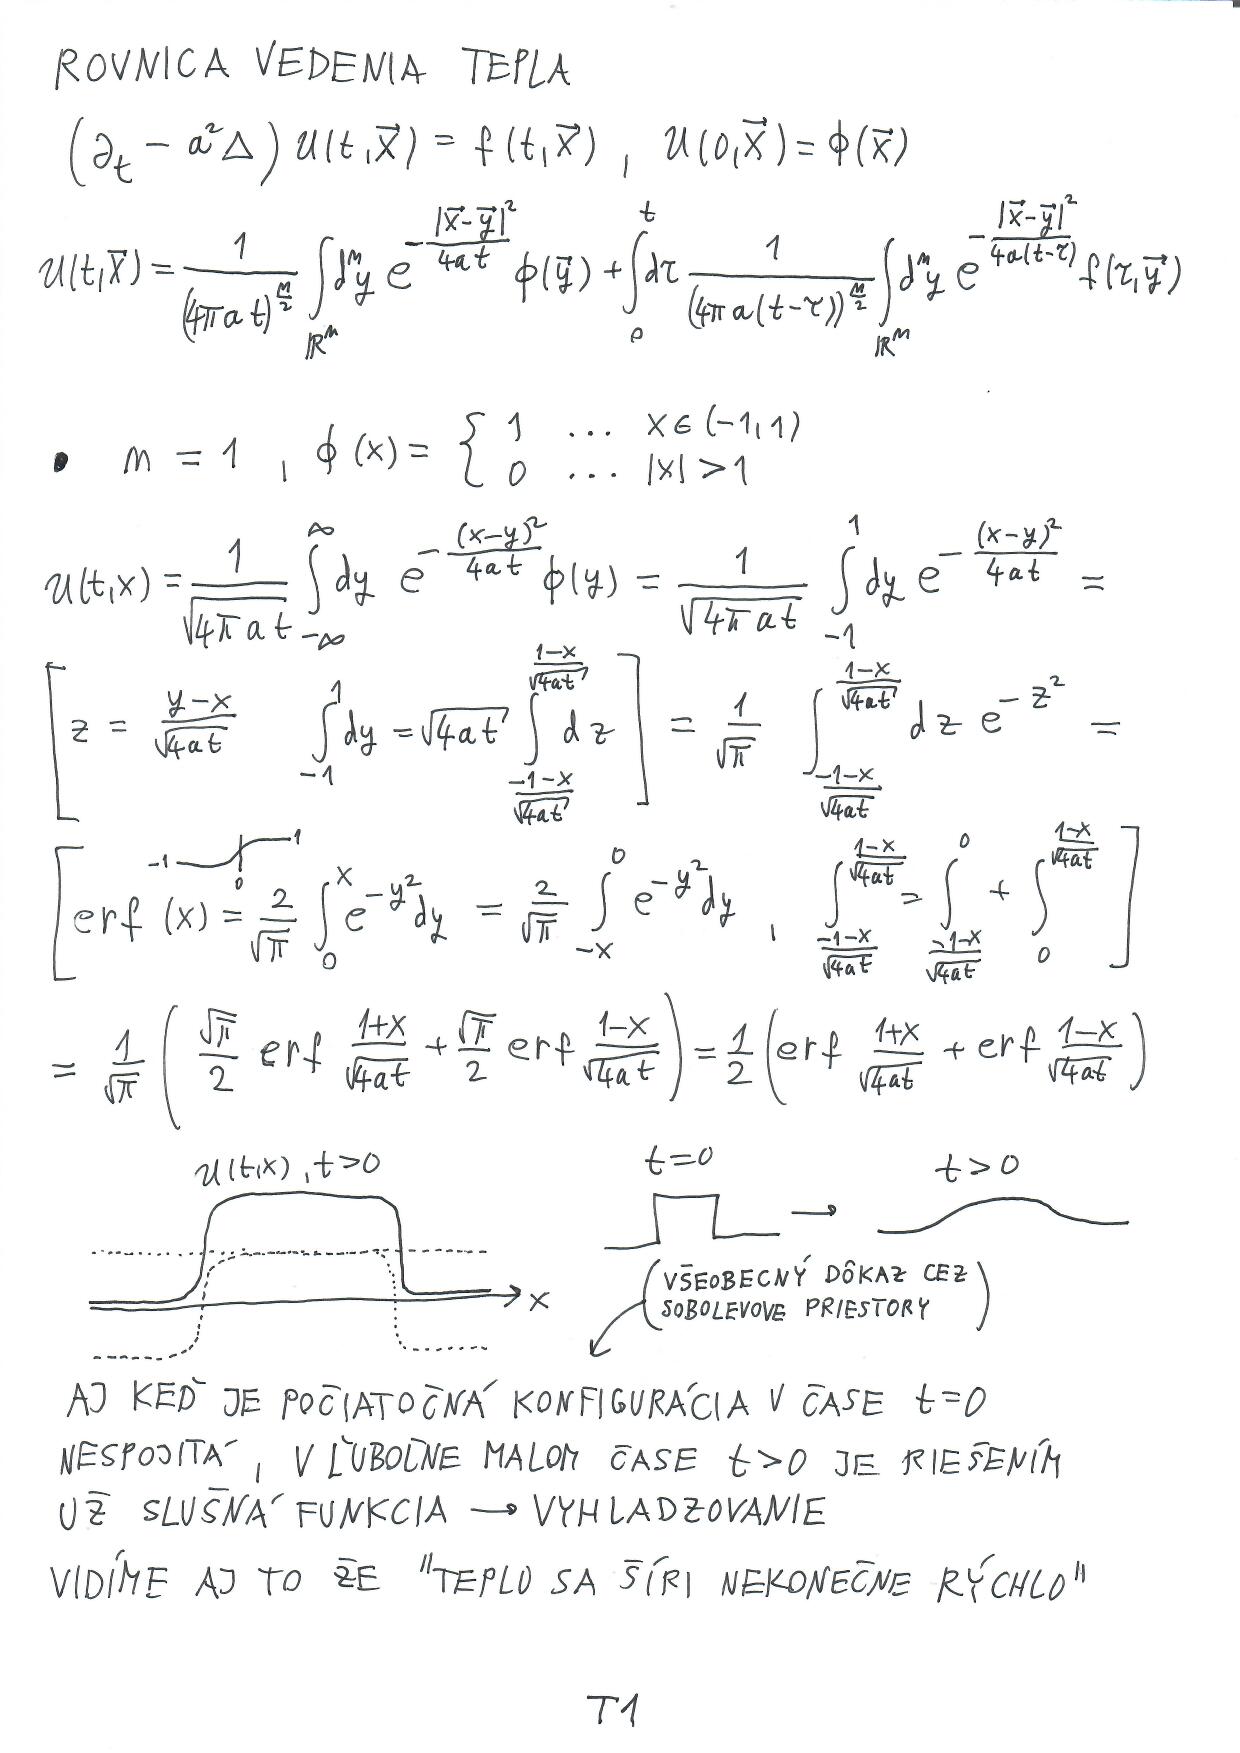 ROVNICA VEDENIA TEPLA
(∂_t − a²Δ) u(t,x⃗) = f(t,x⃗) , u(0,x⃗) = ϕ(x⃗)
u(t,x⃗) = 1/(4πat)^{n/2} ∫_{ℝⁿ} dⁿy e^{−|x⃗−y⃗|²/4at} ϕ(y⃗) + ∫_0^t dτ 1/(4πa(t−τ))^{n/2} ∫_{ℝⁿ} dⁿy e^{−|x⃗−y⃗|²/4a(t−τ)} f(τ,y⃗)
• n = 1 , ϕ(x) = { 1 ... x∈(−1,1)
0 ... |x| > 1
u(t,x) = 1/√(4πat) ∫_{−∞}^{∞} dy e^{−(x−y)²/4at} ϕ(y) = 1/√(4πat) ∫_{−1}^{1} dy e^{−(x−y)²/4at} =
[ z = (y−x)/√(4at) ∫_{−1}^{1} dy = √(4at) ∫_{(−1−x)/√(4at)}^{(1−x)/√(4at)} dz ] = 1/√π ∫_{(−1−x)/√(4at)}^{(1−x)/√(4at)} dz e^{−z²} =
−1 0 1
[ erf (x) = 2/√π ∫_0^x e^{−y²} dy = 2/√π ∫_{−x}^0 e^{−y²} dy , ∫_{(−1−x)/√(4at)}^{(1−x)/√(4at)} = ∫_{(−1−x)/√(4at)}^0 + ∫_0^{(1−x)/√(4at)} ]
= 1/√π ( √π/2 erf (1+x)/√(4at) + √π/2 erf (1−x)/√(4at) ) = 1/2 ( erf (1+x)/√(4at) + erf (1−x)/√(4at) )
u(t,x) , t>0
x
t=0 → t>0
(VŠEOBECNÝ DÔKAZ CEZ
SOBOLEVOVE PRIESTORY)
AJ KEĎ JE POČIATOČNÁ KONFIGURÁCIA V ČASE t=0
NESPOJITÁ, V ĽUBOĽNE MALOM ČASE t>0 JE RIEŠENÍM
UŽ SLUŠNÁ FUNKCIA → VYHLADZOVANIE
VIDÍME AJ TO ŽE "TEPLO SA ŠÍRI NEKONEČNE RÝCHLO"
T1